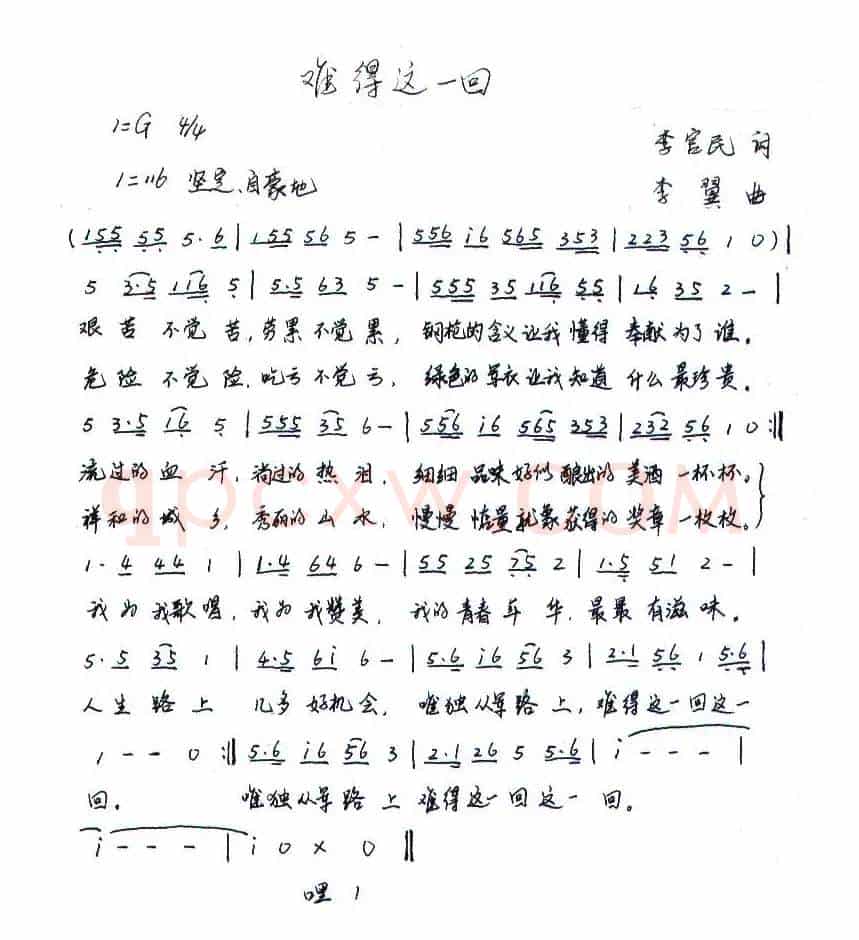 难得这一回
1=G 4/4
李官民 词
1=116 坚定、自豪地
李翼 曲
(155 55 5·6 | 155 56 5 - | 556 i6 565 353 | 223 56 1 0) |
5 3·5 116 5 | 5·5 63 5 - | 555 35 116 55 | 16 35 2 - |
艰苦不觉苦,劳累不觉累, 钢枪的含义让我懂得 奉献为了谁。
危险不觉险,吃亏不觉亏, 绿色的军衣让我知道 什么最珍贵。
5 3·5 16 5 | 555 35 6 - | 556 i6 565 353 | 232 56 1 0 :||
流过的血汗,淌过的热泪, 细细品味好似酿出的美酒一杯杯。
祥和的城乡,秀丽的山水, 慢慢掂量就象获得的奖章一枚枚。
1· 4 44 1 | 1·4 64 6 - | 55 25 75 2 | 1·5 51 2 - |
我为我歌唱,我为我赞美, 我的青春年华,最最有滋味。
5· 5 35 1 | 4·5 6i 6 - | 5·6 i6 56 3 | 2·1 56 1 5·6 |
人生路上 几多好机会, 唯独从军路上,难得这一回这一
1 - - 0 :|| 5·6 i6 56 3 | 2·1 26 5 5·6 | i - - - |
回。 唯独从军路上 难得这一回这一 回。
i - - - | i 0 x 0 ||
嘿!
qpcxw.com